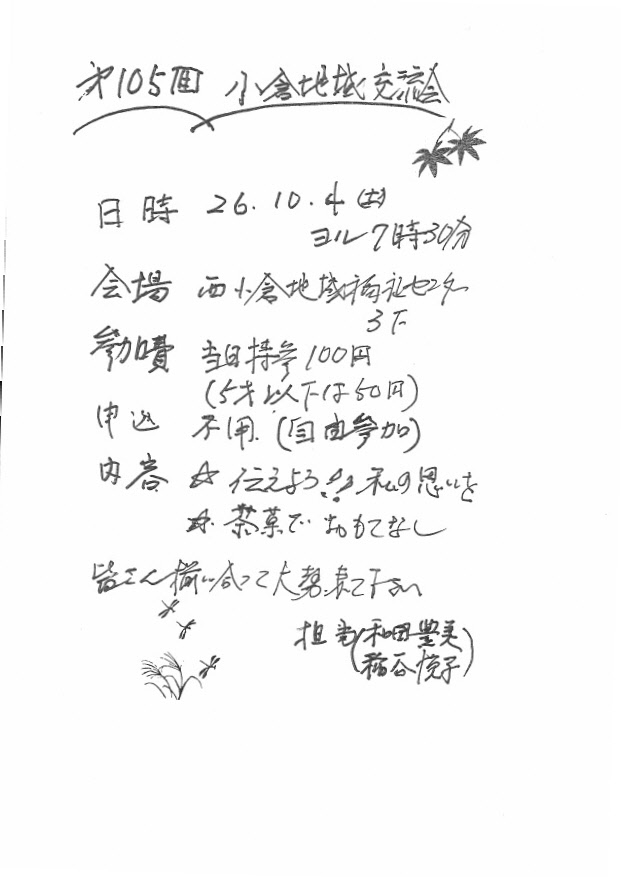 第105回 小倉地域交流会
日時 26.10.4(土)
ヨル7時30分
会場 西小倉地域福祉センター
3F
参加費 当日持参100円
(5才以下は50円)
申込 不用.(自由参加)
内容 ☆ 伝えよう!! 私の思いを
☆ 茶菓で おもてなし
皆さん揃い合って大勢来て下さい
担当(和田豊美
谷悦子)